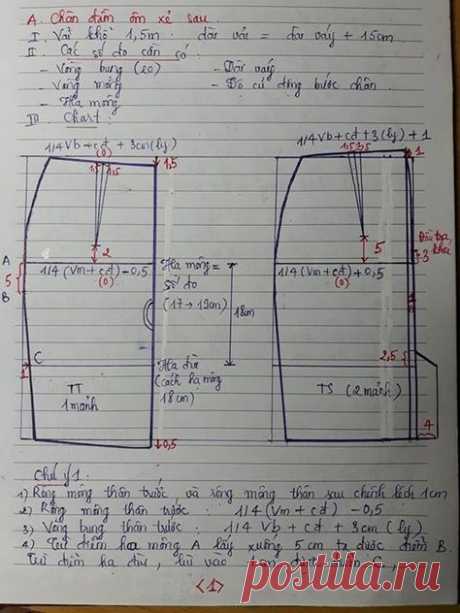 A. Chân đầm ôm xẻ sau
I. Vải khổ 1,5m: dài vải = dài váy + 15cm
II. Các số đo cần có:
- Vòng bụng (eo) - Dài váy
- Vòng mông - Đo cử động bước chân.
- Hạ mông
III. Chart:
1/4 Vb + cđ + 3cm (ly)
(0)
1,5 1,5
1,5
2
A
5
B
1/4 (Vm + cđ) - 0,5
(0)
Hạ mông =
số đo
(17 → 19cm)
18cm
C
1
Hạ đùi
(cách hạ mông
18cm)
TT
1 mảnh
0,5
1/4 Vb + cđ + 3 (ly) + 1
(0)
1,5 1,5
1
5
Đầu tra
khóa
3
1/4 (Vm + cđ) + 0,5
(0)
1
2,5
TS (2 mảnh)
4
Chú ý 1:
1) Rộng mông thân trước và rộng mông thân sau chênh lệch 1cm
2) Rộng mông thân trước: 1/4 (Vm + cđ) - 0,5
3) Vòng bụng thân trước: 1/4 Vb + cđ + 3cm (ly)
4) Từ điểm hạ mông A lấy xuống 5 cm ta được điểm B.
Từ điểm hạ đùi, lùi vào
<1>